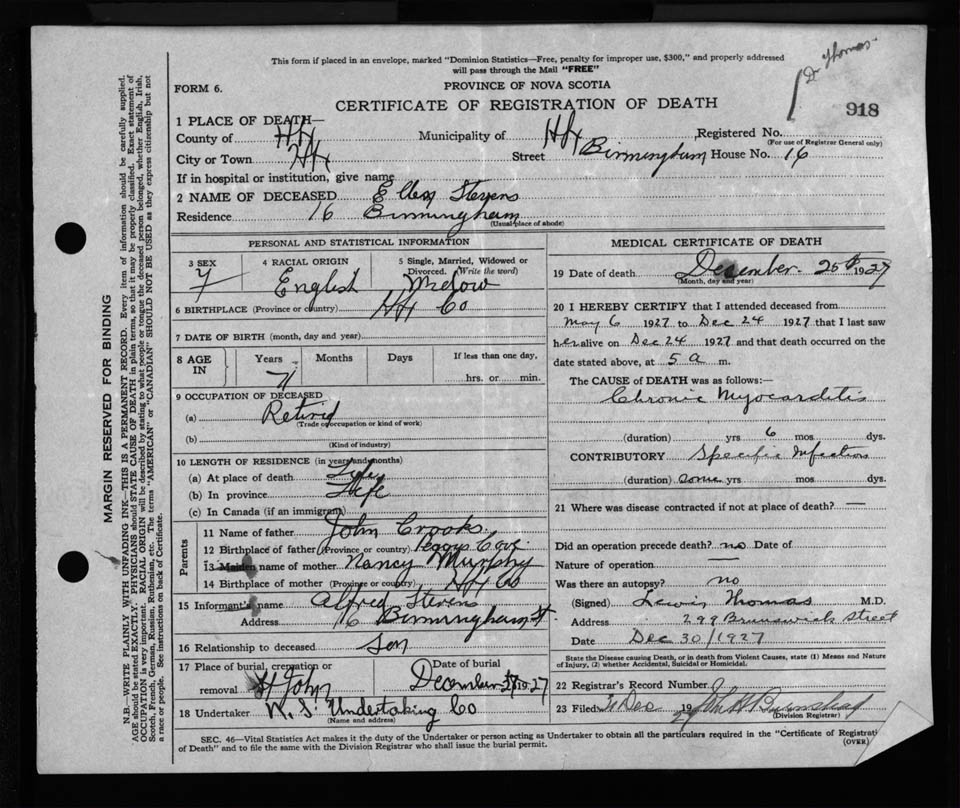 Dr Thomas
This form if placed in an envelope, marked "Dominion Statistics—Free, penalty for improper use, $300," and properly addressed
will pass through the Mail "FREE"
FORM 6.
PROVINCE OF NOVA SCOTIA
CERTIFICATE OF REGISTRATION OF DEATH
918
1 PLACE OF DEATH—
County of Hfx Municipality of Hfx Registered No.
(For use of Registrar General only)
City or Town Hfx Street Birmingham House No. 16
If in hospital or institution, give name
2 NAME OF DECEASED Ellen Stevens
Residence 16 Birmingham
(Usual place of abode)
PERSONAL AND STATISTICAL INFORMATION
3 SEX 4 RACIAL ORIGIN 5 Single, Married, Widowed or Divorced. (Write the word)
F English Widow
6 BIRTHPLACE (Province or country) Hfx Co
7 DATE OF BIRTH (month, day and year)
8 AGE IN Years Months Days If less than one day,
71 hrs. or min.
9 OCCUPATION OF DECEASED
(a) Retired
(Trade or occupation or kind of work)
(b)
(Kind of industry)
10 LENGTH OF RESIDENCE (in years and months)
(a) At place of death Life
(b) In province Life
(c) In Canada (if an immigrant)
Parents
11 Name of father John Crooks
12 Birthplace of father (Province or country) Peggys Cove
13 Maiden name of mother Nancy Murphy
14 Birthplace of mother (Province or country) Hfx Co
15 Informant's name Alfred Stevens
Address 16 Birmingham St
16 Relationship to deceased Son
17 Place of burial, cremation or removal St John Date of burial December 27 1927
18 Undertaker N. S. Undertaking Co
(Name and address)
MEDICAL CERTIFICATE OF DEATH
19 Date of death December 25th 1927
(Month, day and year)
20 I HEREBY CERTIFY that I attended deceased from
May 6 1927 to Dec 24 1927 that I last saw
her alive on Dec 24 1927 and that death occurred on the
date stated above, at 5 a m.
The CAUSE of DEATH was as follows:—
Chronic Myocarditis
(duration) yrs 6 mos dys.
CONTRIBUTORY Specific Infection
(duration) some yrs mos dys.
21 Where was disease contracted if not at place of death? —
Did an operation precede death? no Date of
Nature of operation —
Was there an autopsy? no
(Signed) Lewis Thomas M.D.
Address 299 Brunswick Street
Date Dec 30/1927
State the Disease causing Death, or in death from Violent Causes, state (1) Means and Nature
of Injury, (2) whether Accidental, Suicidal or Homicidal.
22 Registrar's Record Number
23 Filed Dec 1927 John H
(Division Registrar)
SEC. 46—Vital Statistics Act makes it the duty of the Undertaker or person acting as Undertaker to obtain all the particulars required in the "Certificate of Registrati
of Death" and to file the same with the Division Registrar who shall issue the burial permit.
(OVER)
MARGIN RESERVED FOR BINDING
N.B.—WRITE PLAINLY WITH UNFADING INK—THIS IS A PERMANENT RECORD. Every item of information should be carefully supplied.
AGE should be stated EXACTLY. PHYSICIANS should STATE CAUSE OF DEATH in plain terms, so that it may be properly classified. Exact statement of
OCCUPATION is very important. RACIAL ORIGIN will be described by stating to what people or tongue the deceased person belonged, whether English, Irish,
Scotch, French, German, Russian, Ruthenian, etc. The terms "AMERICAN" or "CANADIAN" SHOULD NOT BE USED as they express citizenship but not
a race or people. See instructions on back of Certificate.